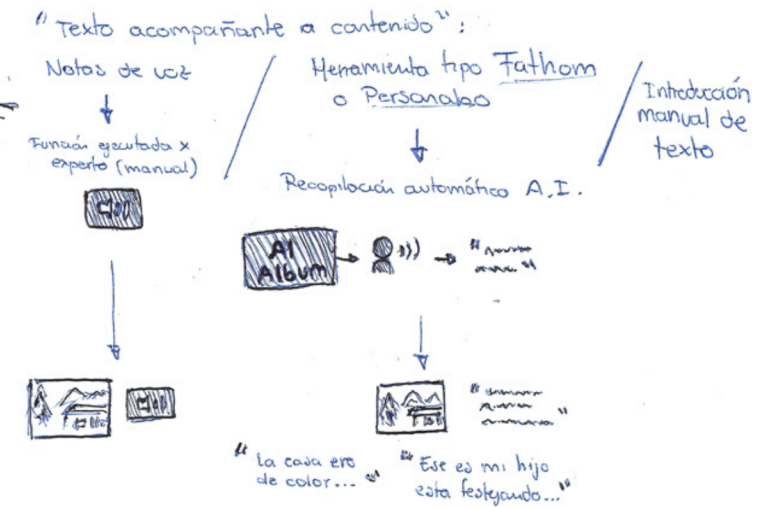 "Texto acompañante a contenido":
Notas de voz
Función ejecutada x
experto (manual)
Herramienta tipo Fathom
o Personabo
Recopilación automático A.I.
AI
Album
Introducción
manual de
texto
"La casa era
de color..."
"Ese es mi hijo
esta festejando..."